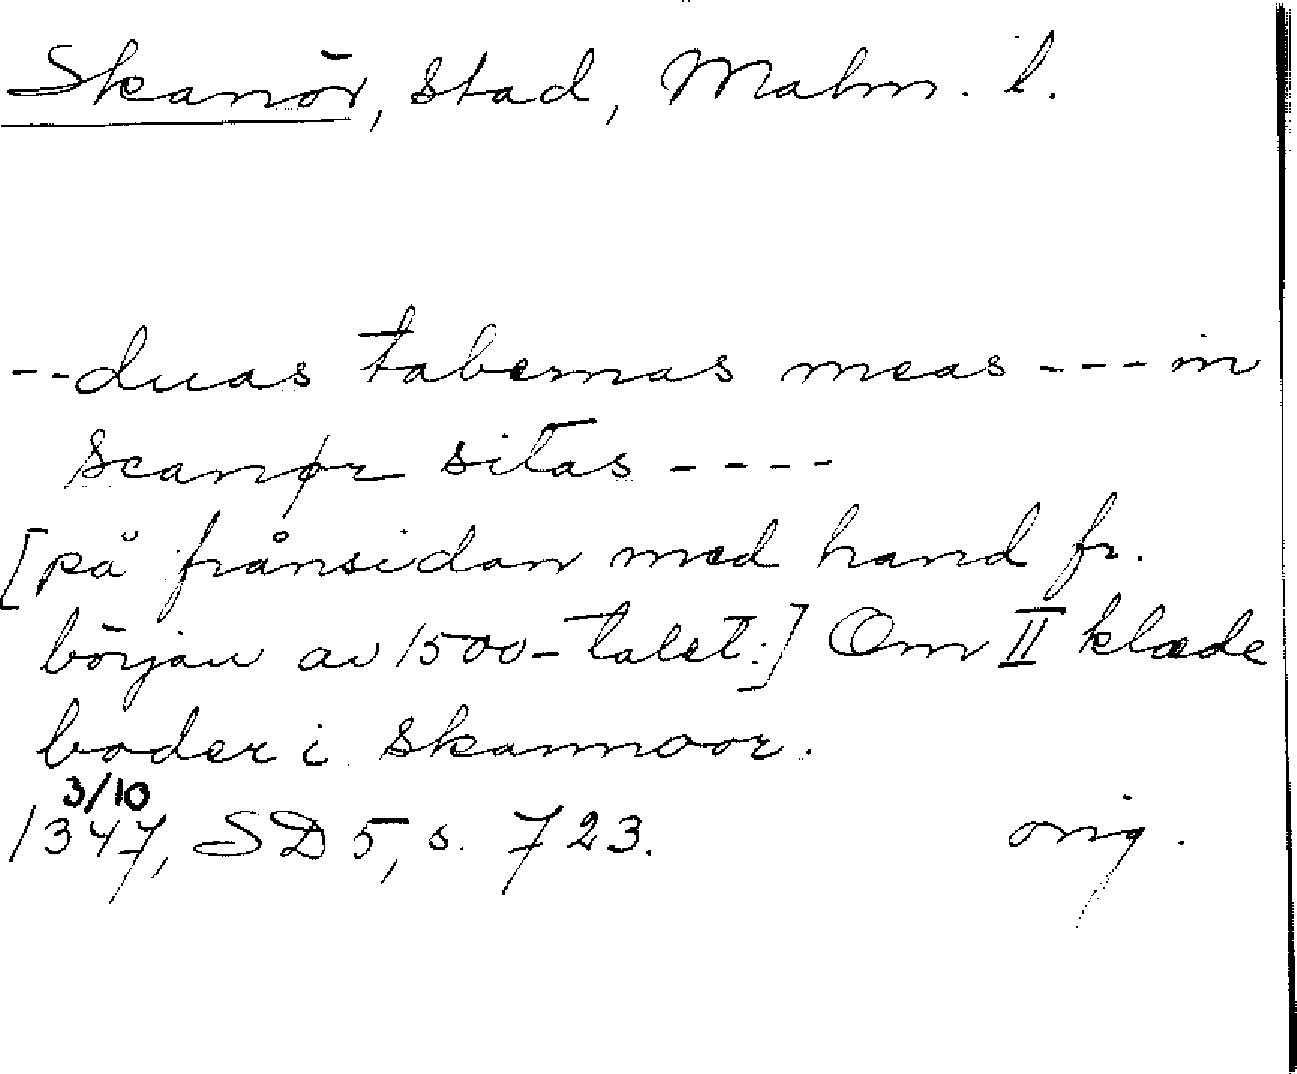 Skanör, stad, Malm. l.
--duas tabernas meas --- in
scanør sitas ----
[på frånsidan med hand fr.
början av 1500-talet:] Om II klæde
boder i skannoor.
3/10
1347, SD 5, s. 723. orig.